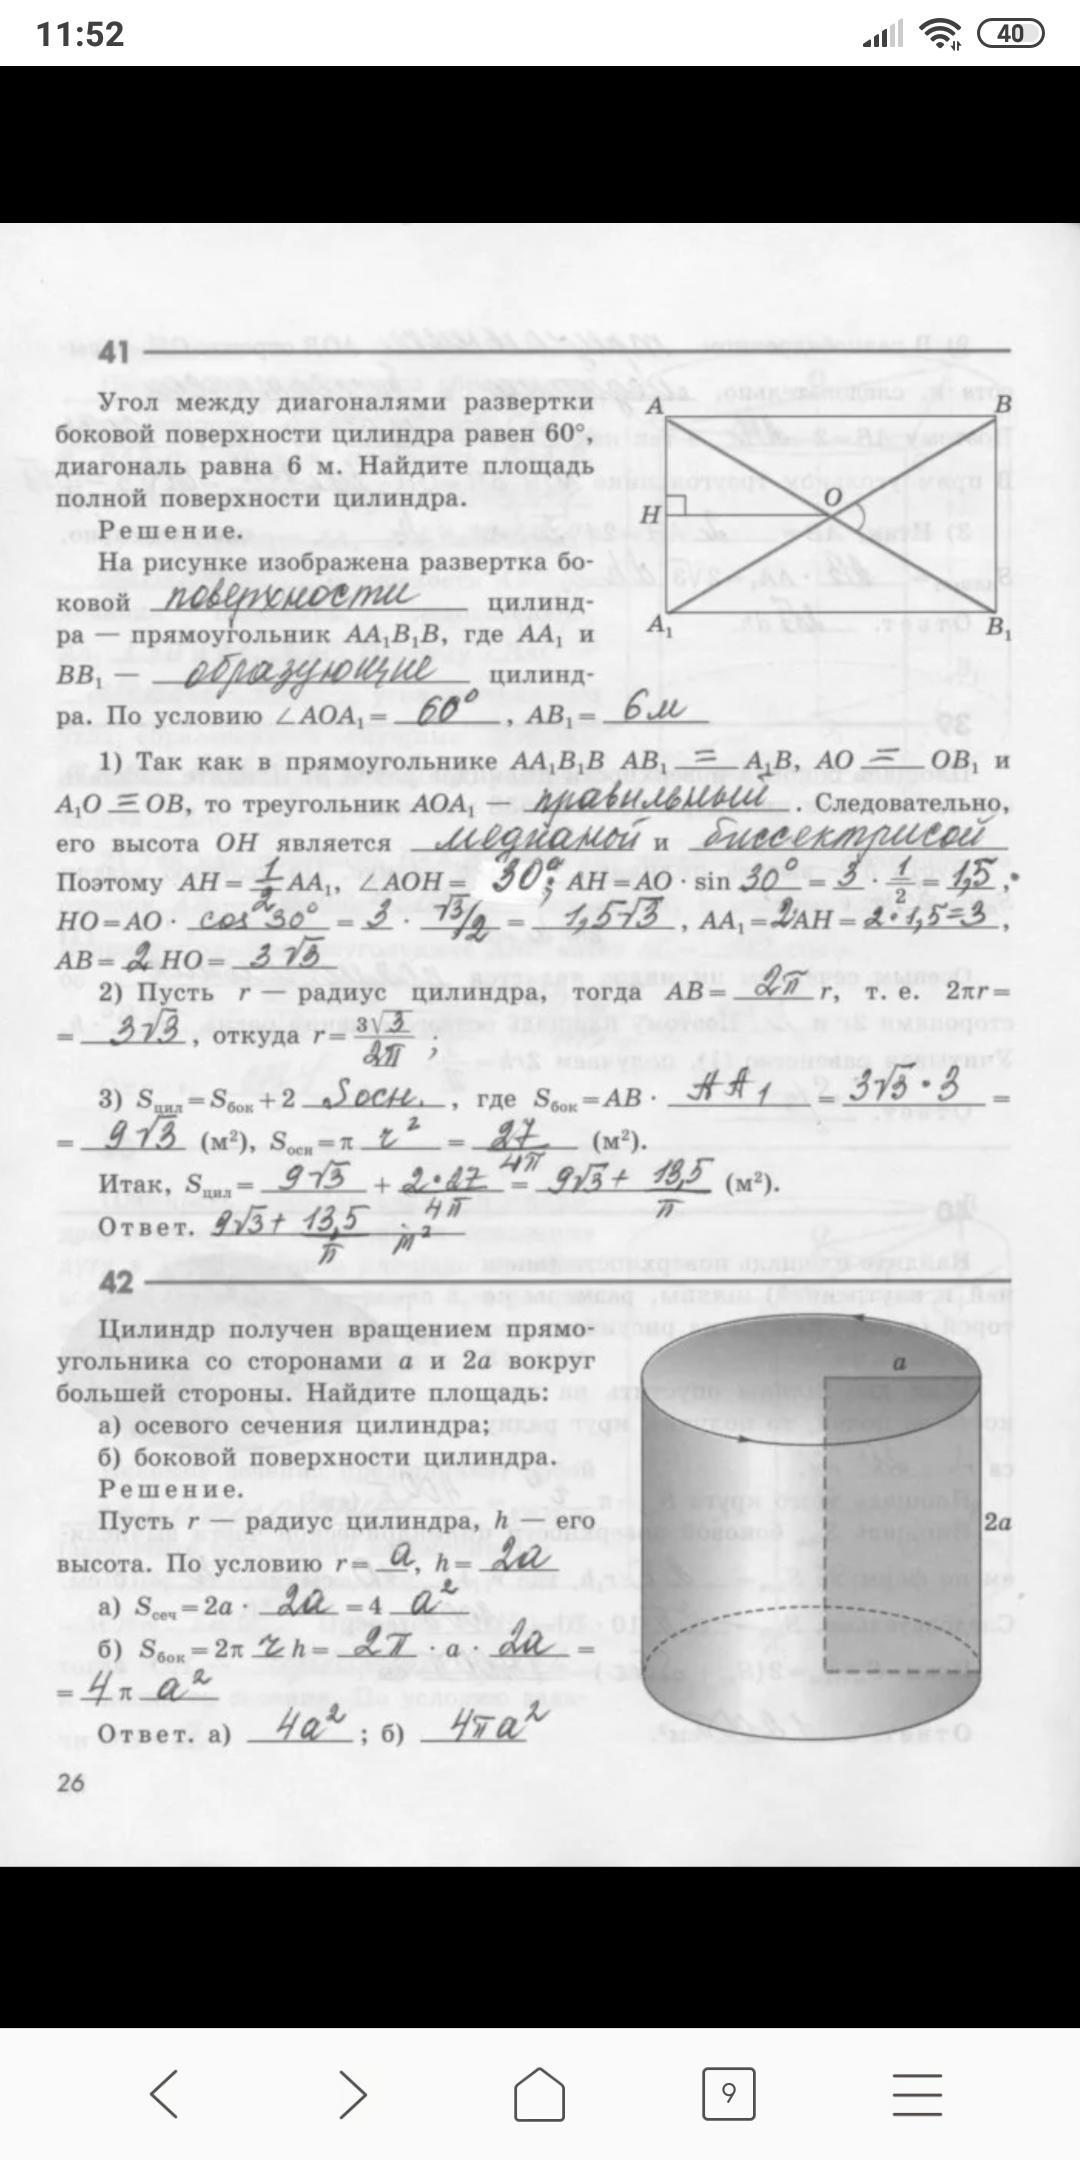 11:52
40
41
Угол между диагоналями развертки
боковой поверхности цилиндра равен 60°,
диагональ равна 6 м. Найдите площадь
полной поверхности цилиндра.
Решение.
На рисунке изображена развертка бо-
ковой поверхности цилинд-
ра — прямоугольник AA₁B₁B, где AA₁ и
BB₁ — образующие цилинд-
ра. По условию ∠AOA₁ = 60°, AB₁ = 6 м
A
B
H
O
A₁
B₁
1) Так как в прямоугольнике AA₁B₁B AB₁ = A₁B, AO = OB₁ и
A₁O = OB, то треугольник AOA₁ — правильный. Следовательно,
его высота OH является медианой и биссектрисой
Поэтому AH = 1/2 AA₁, ∠AOH = 30°; AH = AO · sin 30° = 3 · 1/2 = 1,5,
HO = AO · cos 30° = 3 · √3/2 = 1,5√3, AA₁ = 2AH = 2 · 1,5 = 3,
AB = 2 HO = 3√3
2) Пусть r — радиус цилиндра, тогда AB = 2π r, т. е. 2πr =
= 3√3, откуда r = 3√3/2π;
3) Sцил = Sбок + 2 Sосн., где Sбок = AB · AA₁ = 3√3 · 3 =
= 9√3 (м²), Sосн = π r² = 27/4π (м²).
Итак, Sцил = 9√3 + 2·27/4π = 9√3 + 13,5/π (м²).
Ответ. 9√3 + 13,5/π м²
42
Цилиндр получен вращением прямо-
угольника со сторонами a и 2a вокруг
большей стороны. Найдите площадь:
а) осевого сечения цилиндра;
б) боковой поверхности цилиндра.
Решение.
Пусть r — радиус цилиндра, h — его
высота. По условию r = a, h = 2a
а) Sсеч = 2a · 2a = 4 a²
б) Sбок = 2π r h = 2π · a · 2a =
= 4 π a²
Ответ. а) 4a²; б) 4πa²
a
2a
26
9